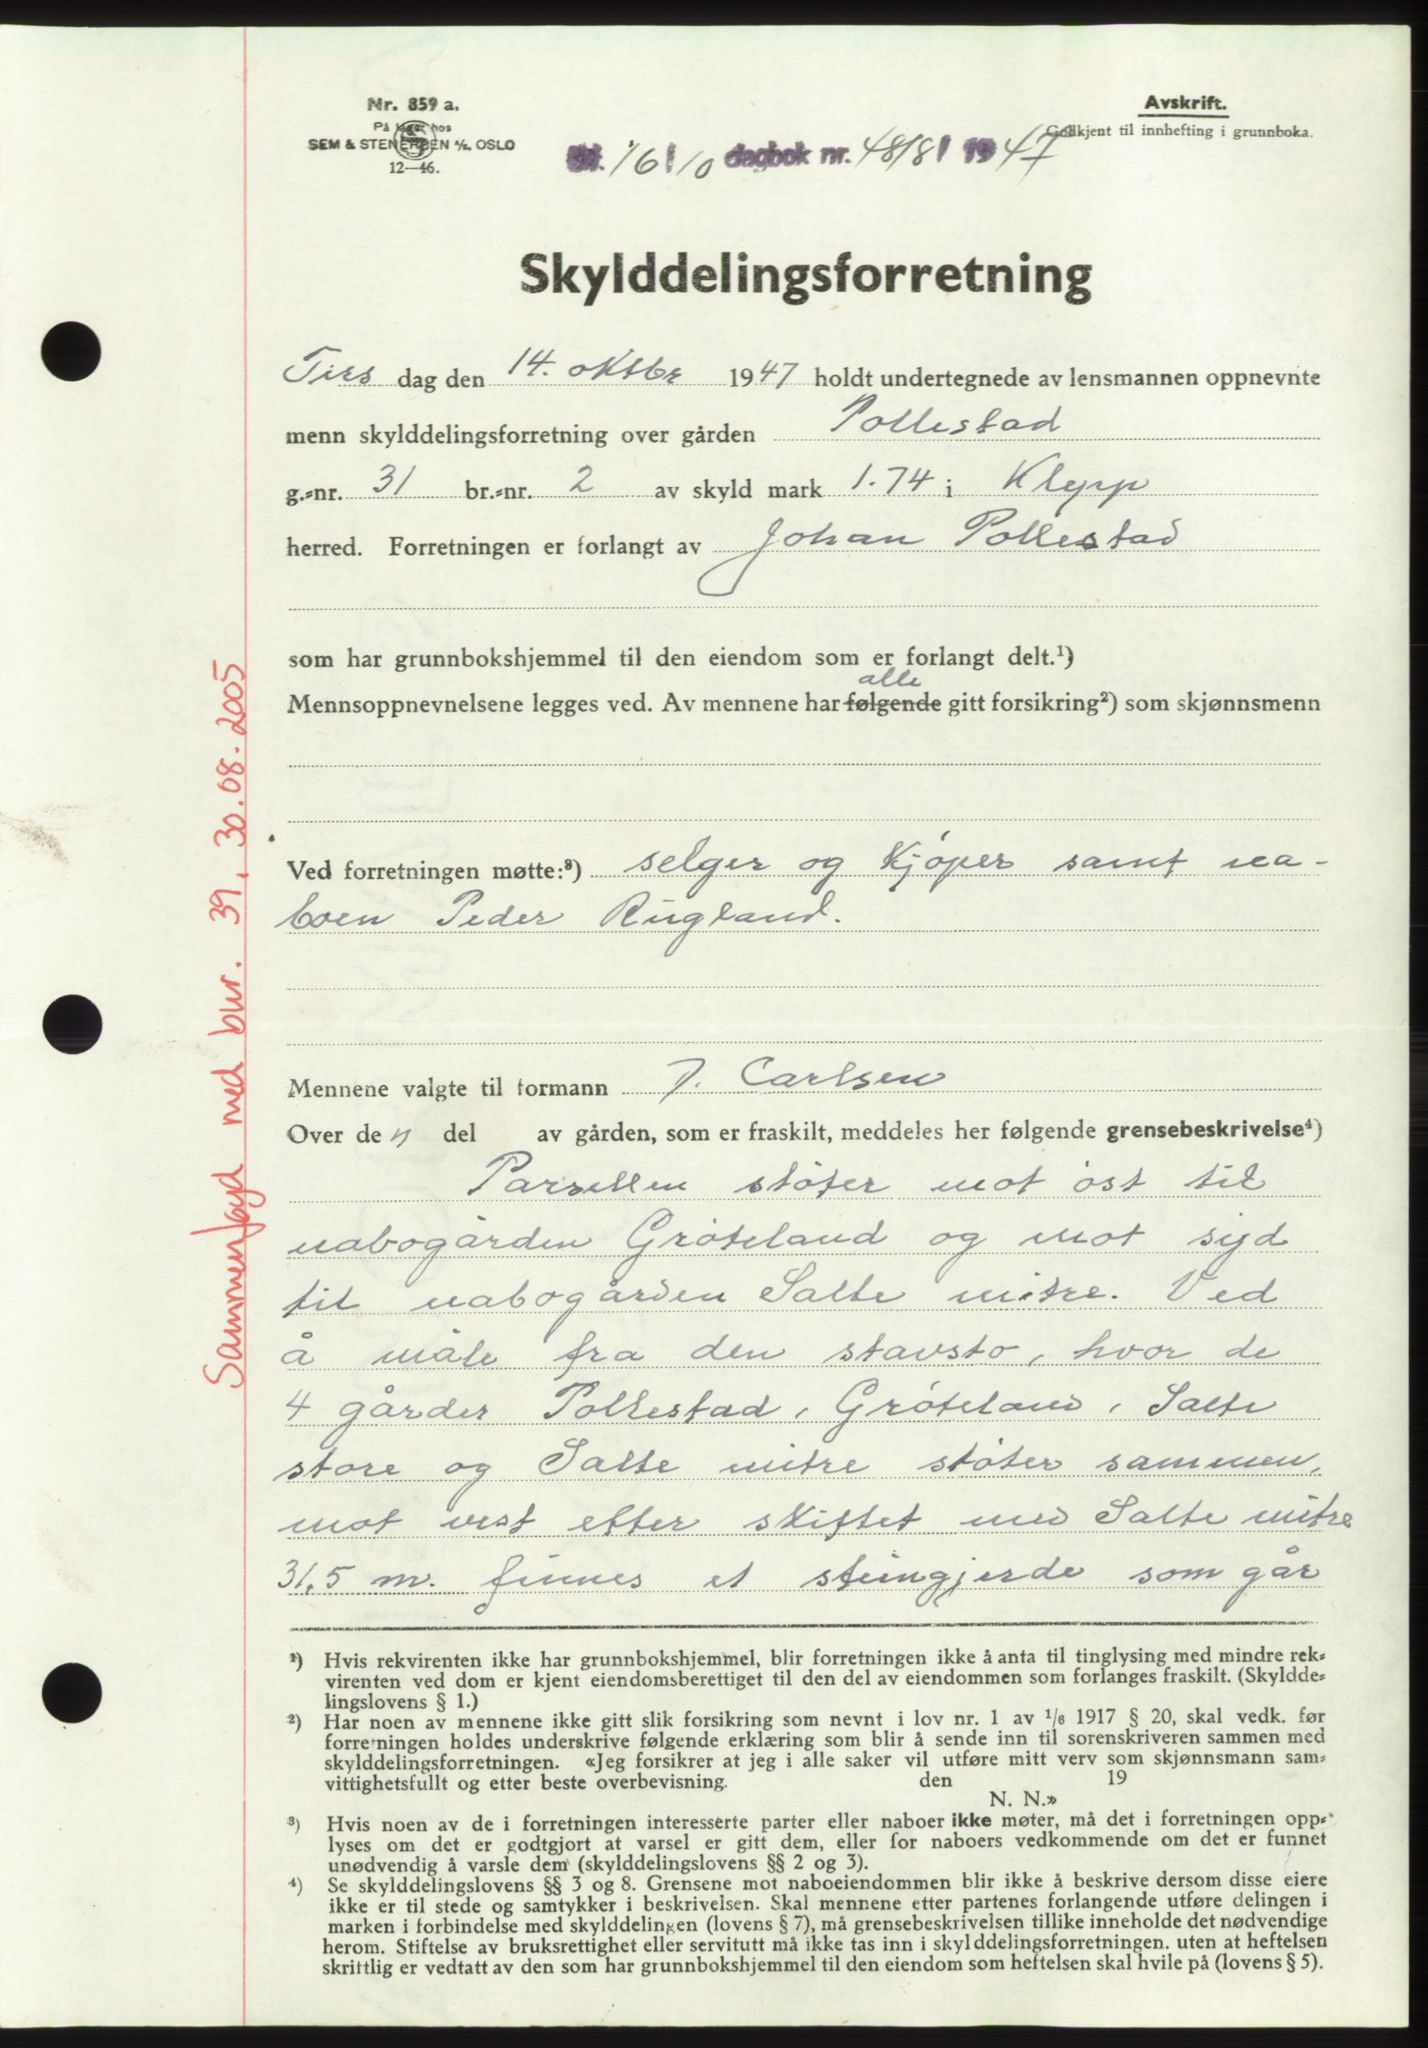 Nr. 859 a.
På lager hos
SEM & STENERSEN A/S, OSLO
12—46.
Avskrift.
Godkjent til innhefting i grunnboka.
16/10 dagbok nr. 4818 1947
Skylddelingsforretning
Tirs dag den 14. oktbr 1947 holdt undertegnede av lensmannen oppnevnte
menn skylddelingsforretning over gården Pollestad
g.=nr. 31 br.=nr. 2 av skyld mark 1.74 i Klepp
herred. Forretningen er forlangt av Johan Pollestad
som har grunnbokshjemmel til den eiendom som er forlangt delt.¹)
alle
Mennsoppnevnelsene legges ved. Av mennene har følgende gitt forsikring²) som skjønnsmenn
Ved forretningen møtte:³) selger og kjøper samt na-
boen Peder Rugland.
Mennene valgte til formann J. Carlsen
Over den del av gården, som er fraskilt, meddeles her følgende grensebeskrivelse⁴)
Parsellen støter mot øst til
nabogården Grøteland og mot syd
til nabogården Salte mitre. Ved
å måle fra den stavsto, hvor de
4 gårder Pollestad, Grøteland, Salte
store og Salte mitre støter sammen,
mot vest etter skiftet med Salte mitre
31,5 m. finnes et steingjerde som går
¹) Hvis rekvirenten ikke har grunnbokshjemmel, blir forretningen ikke å anta til tinglysing med mindre rek=
virenten ved dom er kjent eiendomsberettiget til den del av eiendommen som forlanges fraskilt. (Skyldde=
lingslovens § 1.)
²) Har noen av mennene ikke gitt slik forsikring som nevnt i lov nr. 1 av 1/6 1917 § 20, skal vedk. før
forretningen holdes underskrive følgende erklæring som blir å sende inn til sorenskriveren sammen med
skylddelingsforretningen. «Jeg forsikrer at jeg i alle saker vil utføre mitt verv som skjønnsmann sam=
vittighetsfullt og etter beste overbevisning. den 19
N. N.»
³) Hvis noen av de i forretningen interesserte parter eller naboer ikke møter, må det i forretningen opp=
lyses om det er godtgjort at varsel er gitt dem, eller for naboers vedkommende om det er funnet
unødvendig å varsle dem (skylddelingslovens §§ 2 og 3).
⁴) Se skylddelingslovens §§ 3 og 8. Grensene mot naboeiendommen blir ikke å beskrive dersom disse eiere
ikke er til stede og samtykker i beskrivelsen. Skal mennene etter partenes forlangende utføre delingen i
marken i forbindelse med skylddelingen (lovens § 7), må grensebeskrivelsen tillike inneholde det nødvendige
herom. Stiftelse av bruksrettighet eller servitutt må ikke tas inn i skylddelingsforretningen. uten at heftelsen
skriftlig er vedtatt av den som har grunnbokshjemmel til den eiendom som heftelsen skal hvile på (lovens § 5).
Sammenføyd med bnr. 39, 30.08.2005